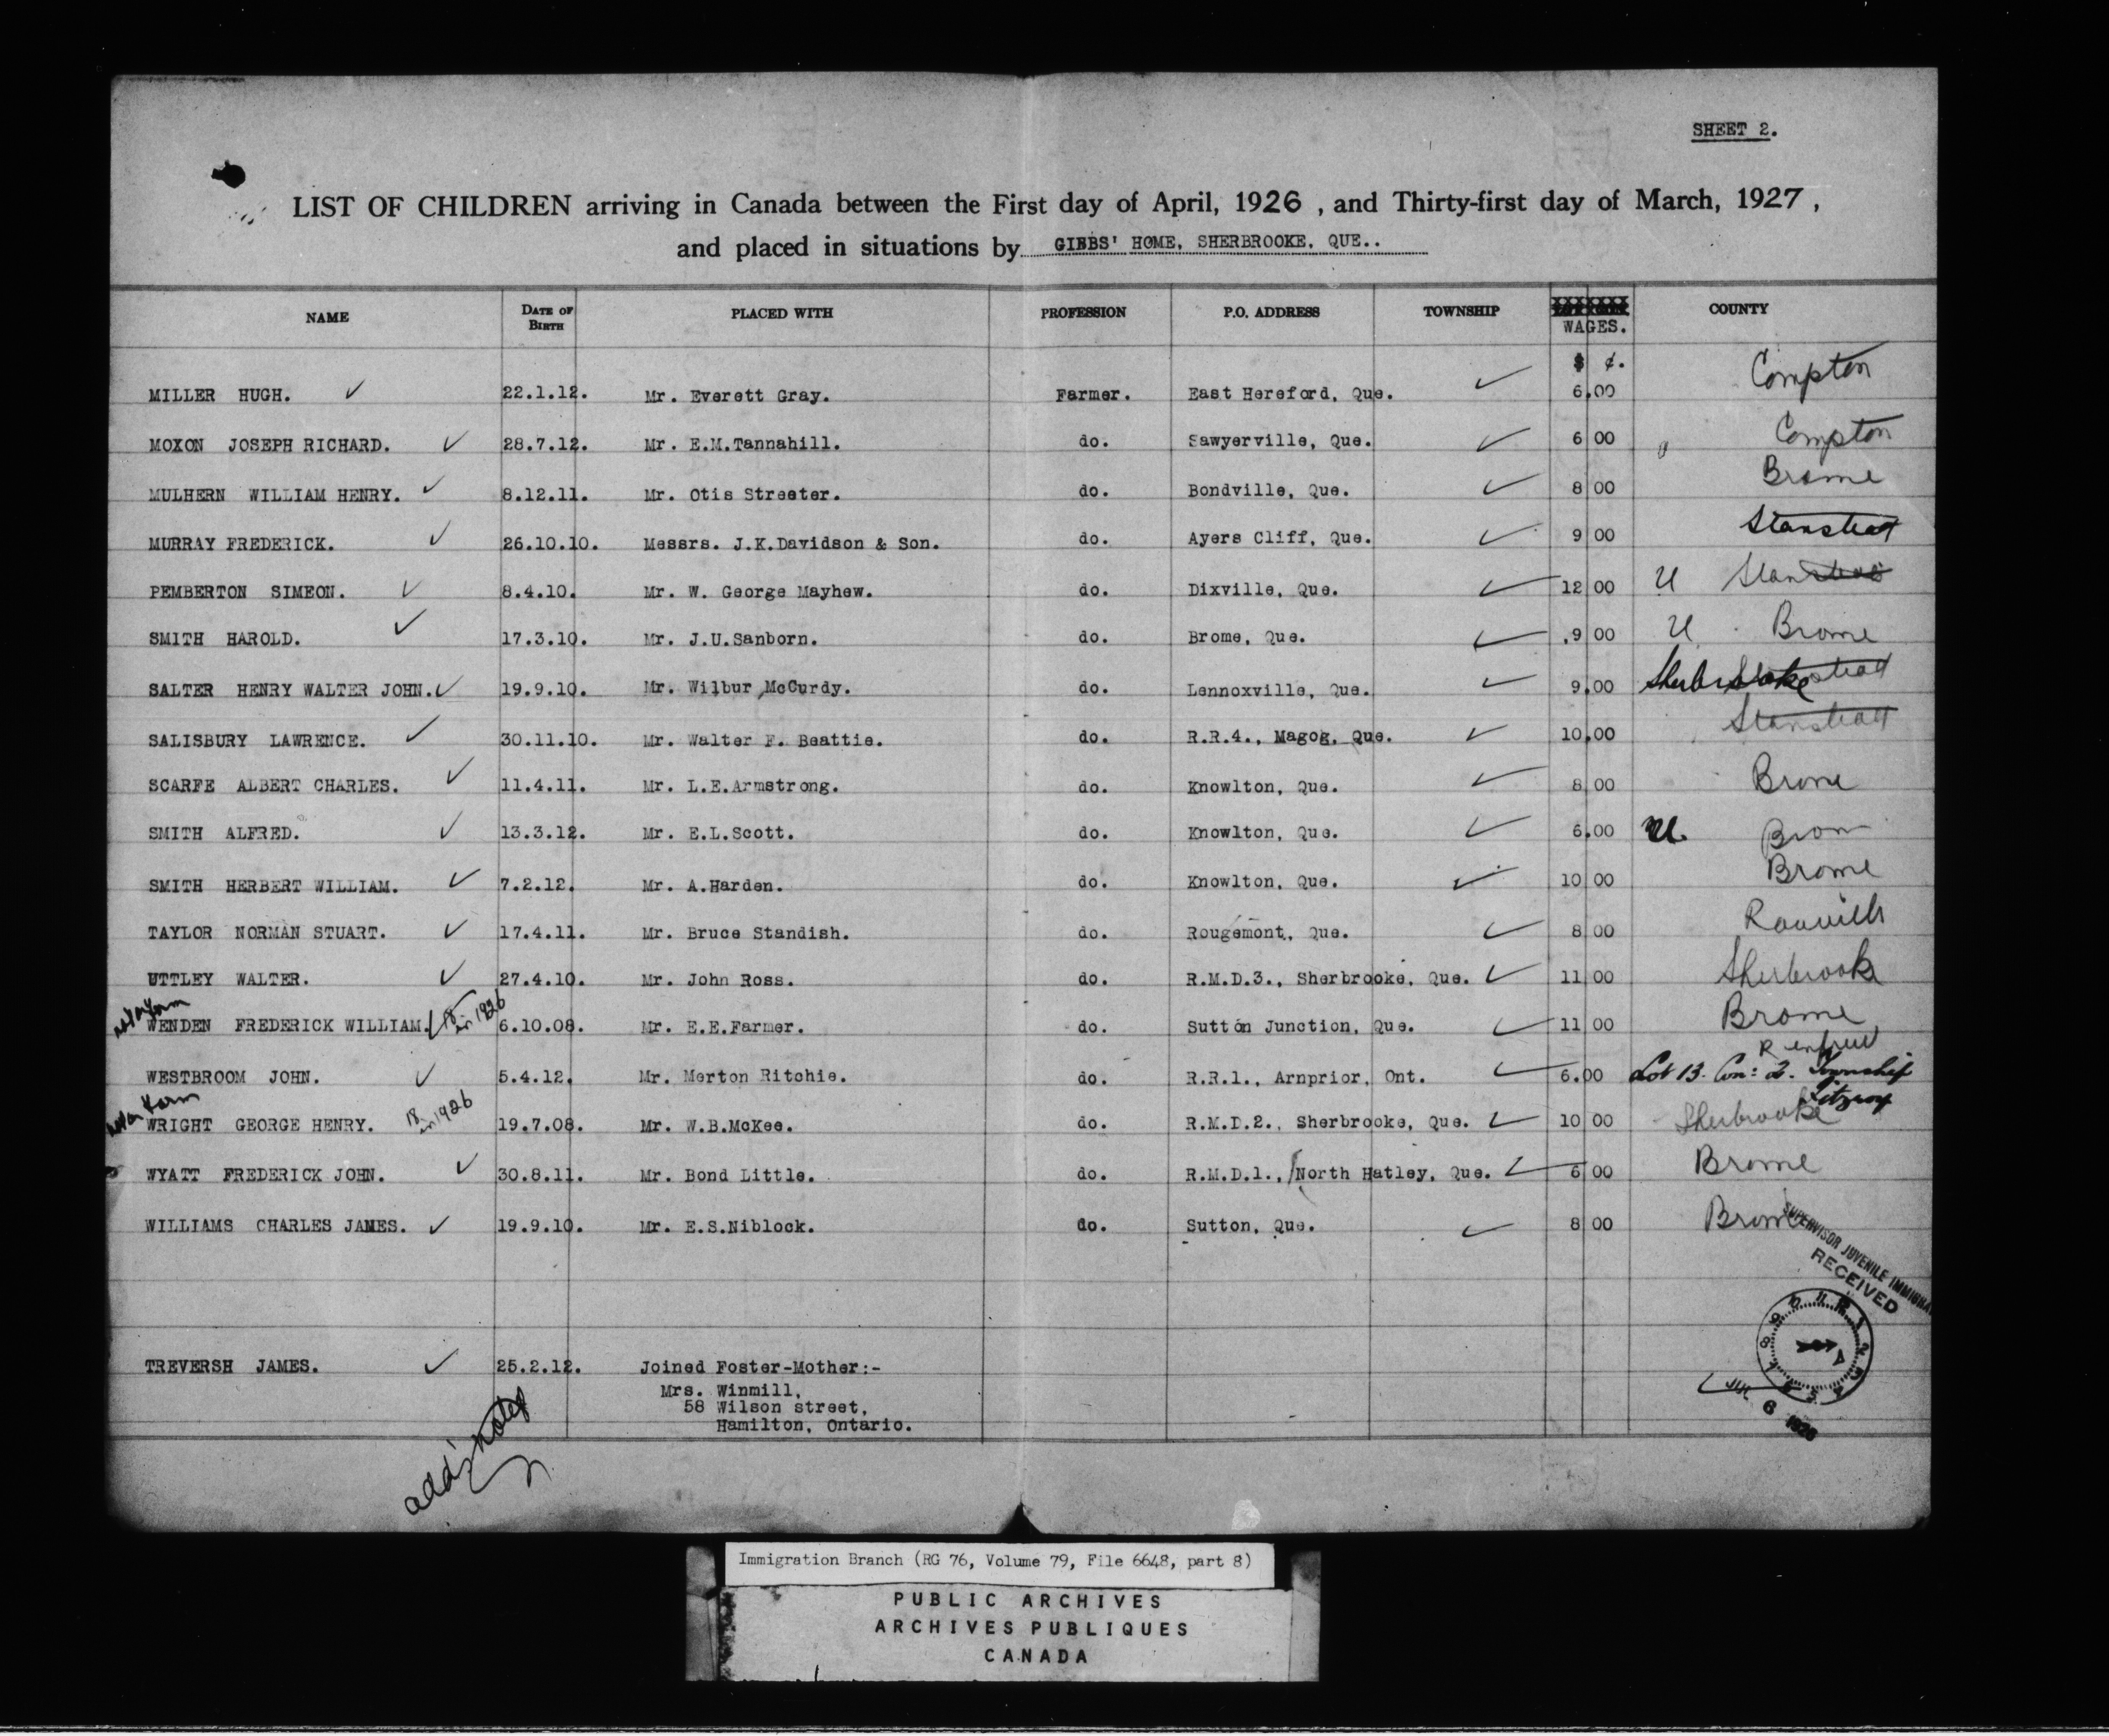 SHEET 2.
LIST OF CHILDREN arriving in Canada between the First day of April, 1926, and Thirty-first day of March, 1927,
and placed in situations by GIBBS' HOME, SHERBROOKE, QUE..
NAME DATE OF BIRTH PLACED WITH PROFESSION P.O. ADDRESS TOWNSHIP WAGES. COUNTY
$ ¢.
MILLER HUGH. ✓ 22.1.12. Mr. Everett Gray. Farmer. East Hereford, Que. ✓ 6.00 Compton
MOXON JOSEPH RICHARD. ✓ 28.7.12. Mr. E.M.Tannahill. do. Sawyerville, Que. ✓ 6 00 Compton
MULHERN WILLIAM HENRY. ✓ 8.12.11. Mr. Otis Streeter. do. Bondville, Que. ✓ 8 00 Brome
MURRAY FREDERICK. ✓ 26.10.10. Messrs. J.K.Davidson & Son. do. Ayers Cliff, Que. ✓ 9 00 Stanstead
PEMBERTON SIMEON. ✓ 8.4.10. Mr. W. George Mayhew. do. Dixville, Que. ✓ 12 00 U Stanstead
SMITH HAROLD. ✓ 17.3.10. Mr. J.U.Sanborn. do. Brome, Que. ✓ .9 00 U Brome
SALTER HENRY WALTER JOHN. ✓ 19.9.10. Mr. Wilbur McCurdy. do. Lennoxville, Que. ✓ 9.00 Sherbrooke
SALISBURY LAWRENCE. ✓ 30.11.10. Mr. Walter F. Beattie. do. R.R.4., Magog, Que. ✓ 10.00 Stanstead
SCARFE ALBERT CHARLES. ✓ 11.4.11. Mr. L.E.Armstrong. do. Knowlton, Que. ✓ 8 00 Brome
SMITH ALFRED. ✓ 13.3.12. Mr. E.L.Scott. do. Knowlton, Que. ✓ 6.00 U. Brom
SMITH HERBERT WILLIAM. ✓ 7.2.12. Mr. A.Harden. do. Knowlton, Que. ✓ 10 00 Brome
TAYLOR NORMAN STUART. ✓ 17.4.11. Mr. Bruce Standish. do. Rougemont, Que. ✓ 8 00 Rouville
UTTLEY WALTER. ✓ 27.4.10. Mr. John Ross. do. R.M.D.3., Sherbrooke, Que. ✓ 11 00 Sherbrooke
WENDEN FREDERICK WILLIAM. ✓ 18 in 1926 6.10.08. Mr. E.E.Farmer. do. Sutton Junction, Que. ✓ 11 00 Brome
Renfrew
WESTBROOM JOHN. ✓ 5.4.12. Mr. Merton Ritchie. do. R.R.1., Arnprior, Ont. ✓ 6.00 Lot 13. Con: 2. Township Fitzroy
WRIGHT GEORGE HENRY. 18 in 1926 19.7.08. Mr. W.B.McKee. do. R.M.D.2., Sherbrooke, Que. ✓ 10 00 Sherbrooke
WYATT FREDERICK JOHN. ✓ 30.8.11. Mr. Bond Little. do. R.M.D.1., North Hatley, Que. ✓ 6 00 Brome
WILLIAMS CHARLES JAMES. ✓ 19.9.10. Mr. E.S.Niblock. do. Sutton, Que. ✓ 8 00 Brome
SUPERVISOR JUVENILE IMMIGRA
RECEIVED
TREVERSH JAMES. ✓ 25.2.12. Joined Foster-Mother:-
Mrs. Winmill,
58 Wilson street,
Hamilton, Ontario.
JUL 6
Immigration Branch (RG 76, Volume 79, File 6648, part 8)
PUBLIC ARCHIVES
ARCHIVES PUBLIQUES
CANADA